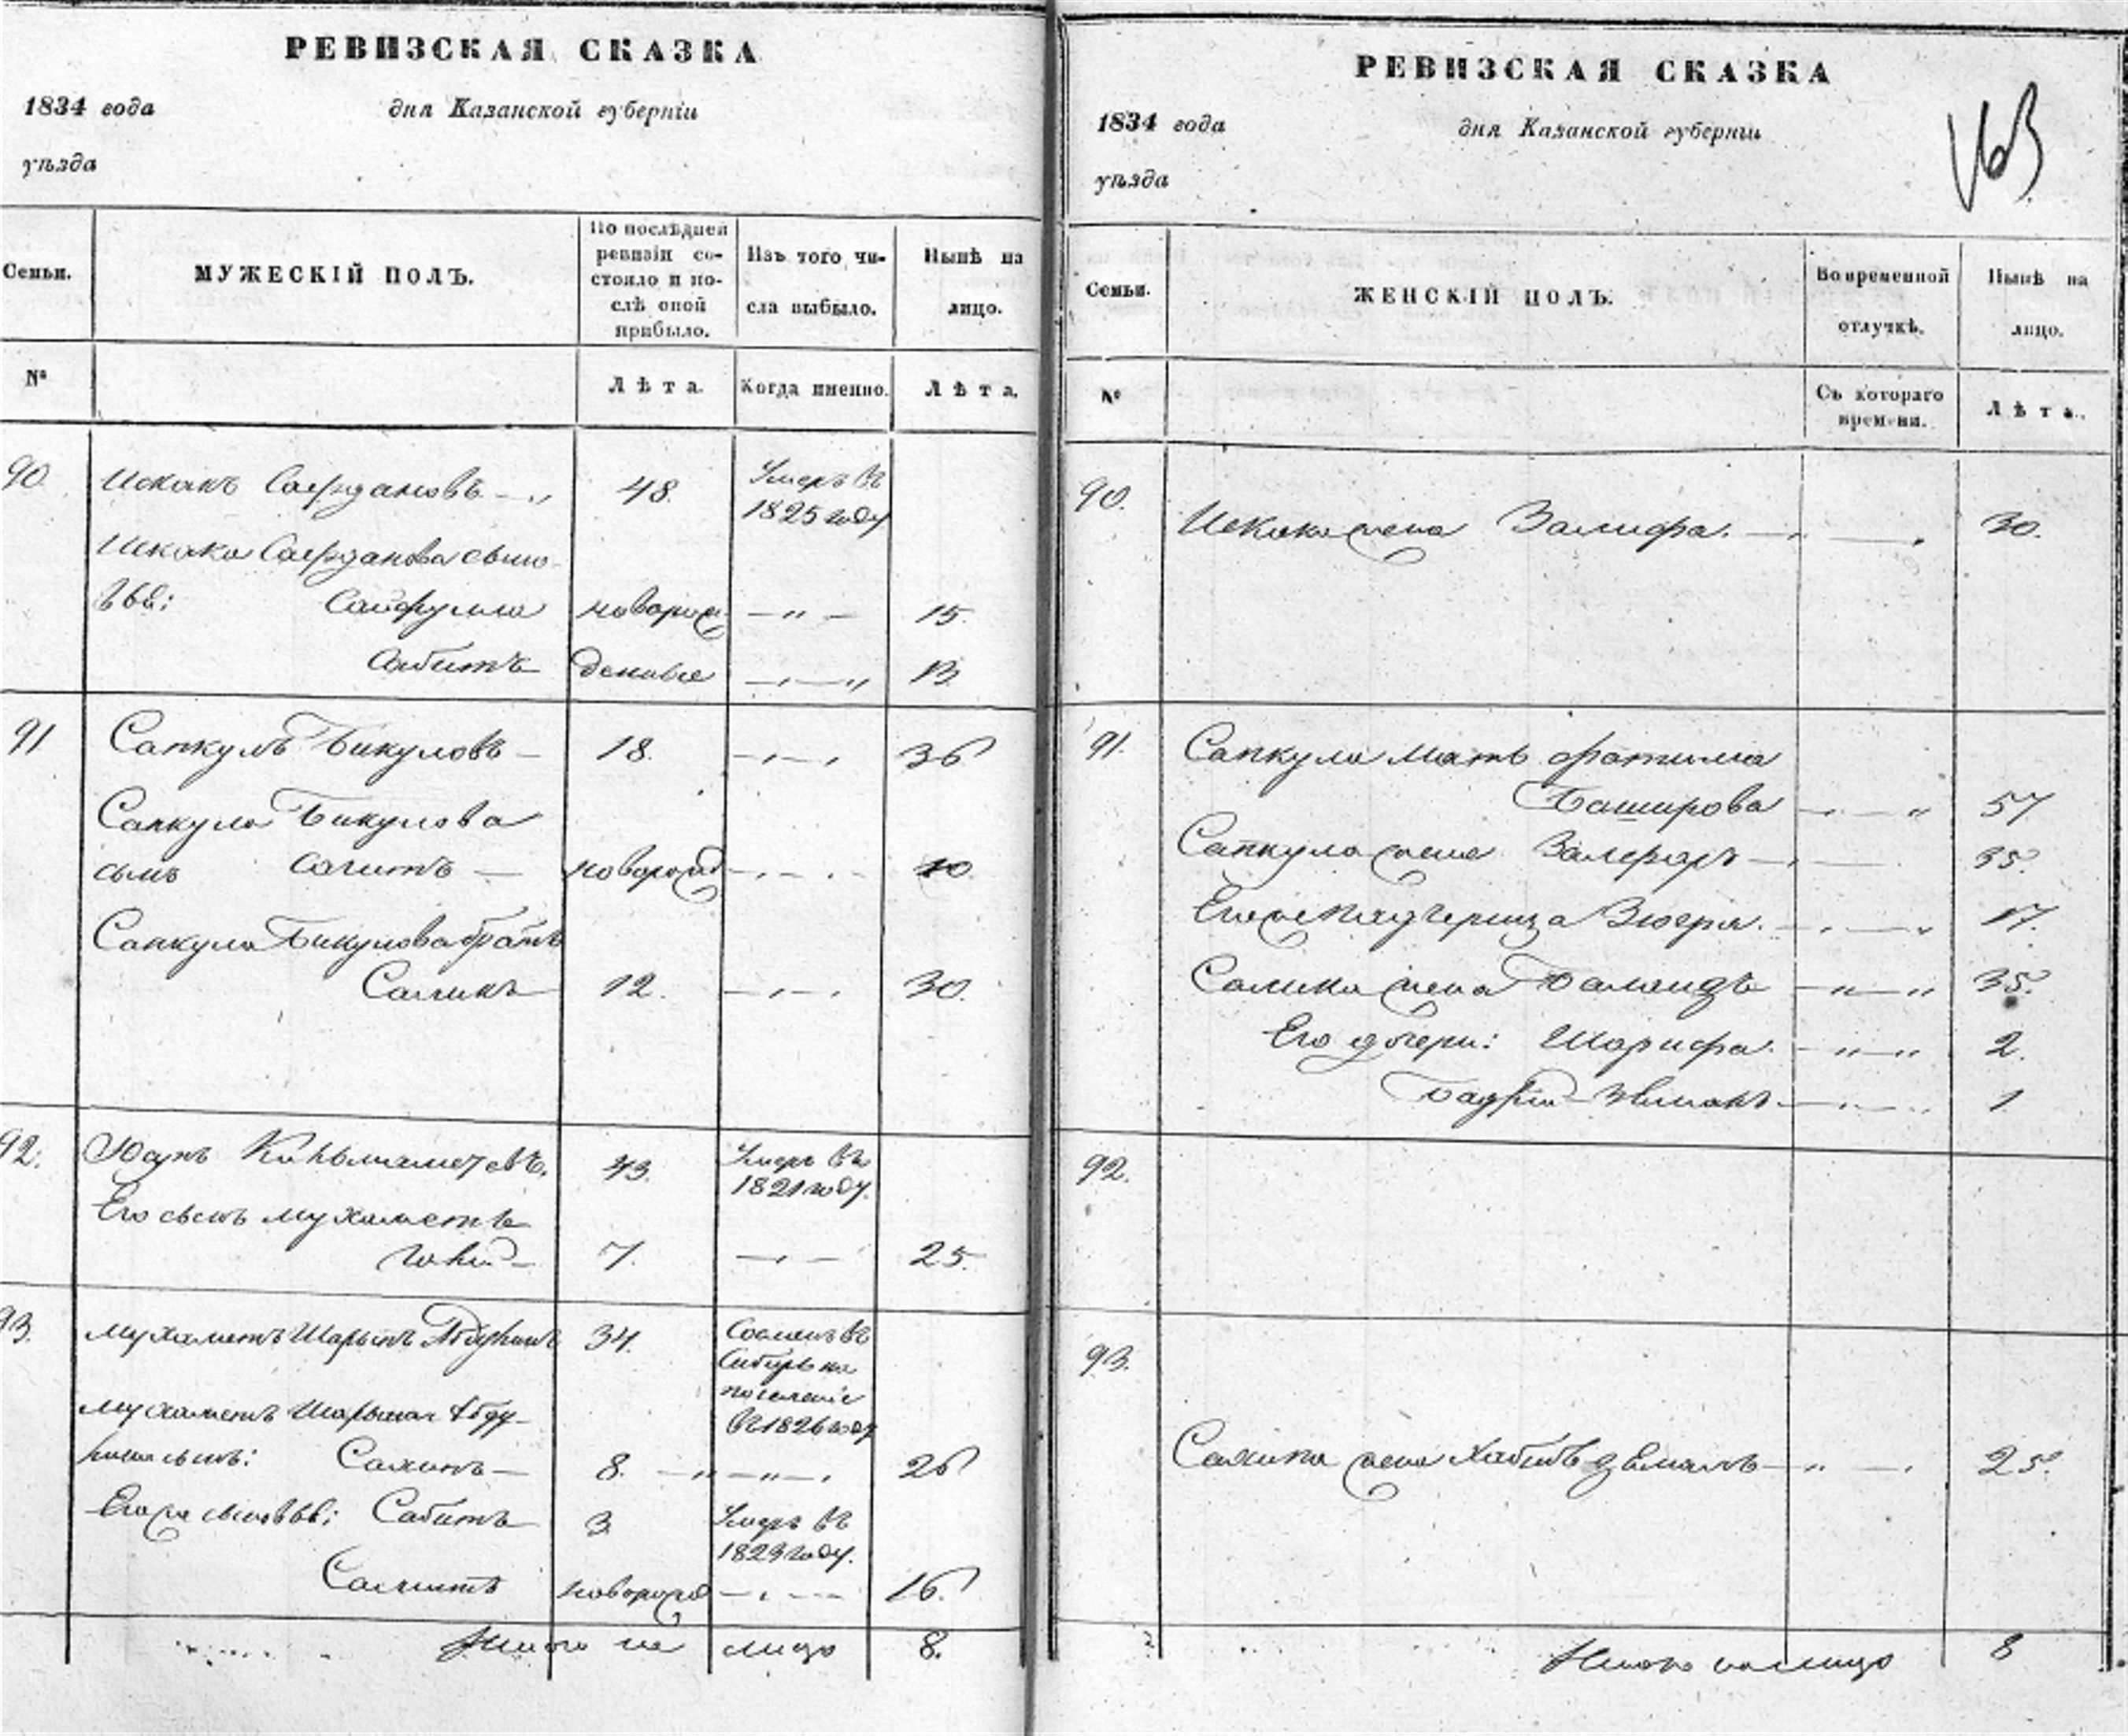 РЕВИЗСКАЯ СКАЗКА
1834 года дня Казанской губерніи
уѣзда
Семьи. МУЖЕСКІЙ ПОЛЪ. По послѣдней ревизіи состояло и послѣ оной прибыло. Изъ того числа выбыло. Нынѣ на лицо.
№ Лѣта. Когда именно. Лѣта.
90 Искакъ 48. Умеръ въ
1825 году
Искака сыно
вья: Сайфулла новорож 15.
Сабитъ денные 13
91 Сапкулъ Бикуловъ 18. 36
Сапкула Бикулова
сынъ новорожд 10
Сапкула Бикулова братъ
Саликъ 12. 30.
92. 43. Умеръ въ
1821 году.
Его сынъ Мухаметъ
7. 25.
93. Мухаметъ Шарыпъ 34. Сосланъ въ
Сибирь на
поселеніе
въ 1826 году
Мухаметъ Шарыпа Абду-
сынъ: 8. 26
Его же сыновья; Сабитъ 3 Умеръ въ
1823 году.
новорожд 16.
Итого на лицо 8.
РЕВИЗСКАЯ СКАЗКА
163
1834 года дня Казанской губерніи
уѣзда
Семьи. ЖЕНСКІЙ ПОЛЪ. Во временной отлучкѣ. Нынѣ на лицо.
№ Съ котораго времени. Лѣта.
90. Искака жена Залифа. 30.
91. Сапкула мать Фатима
Баширова 57
Сапкула жена 35.
Его же падчерица Зюгря. 17.
Салика жена 35.
Его дочери: Шарифа. 2.
1
92.
93.
жена 25.
Итого на лицо 8